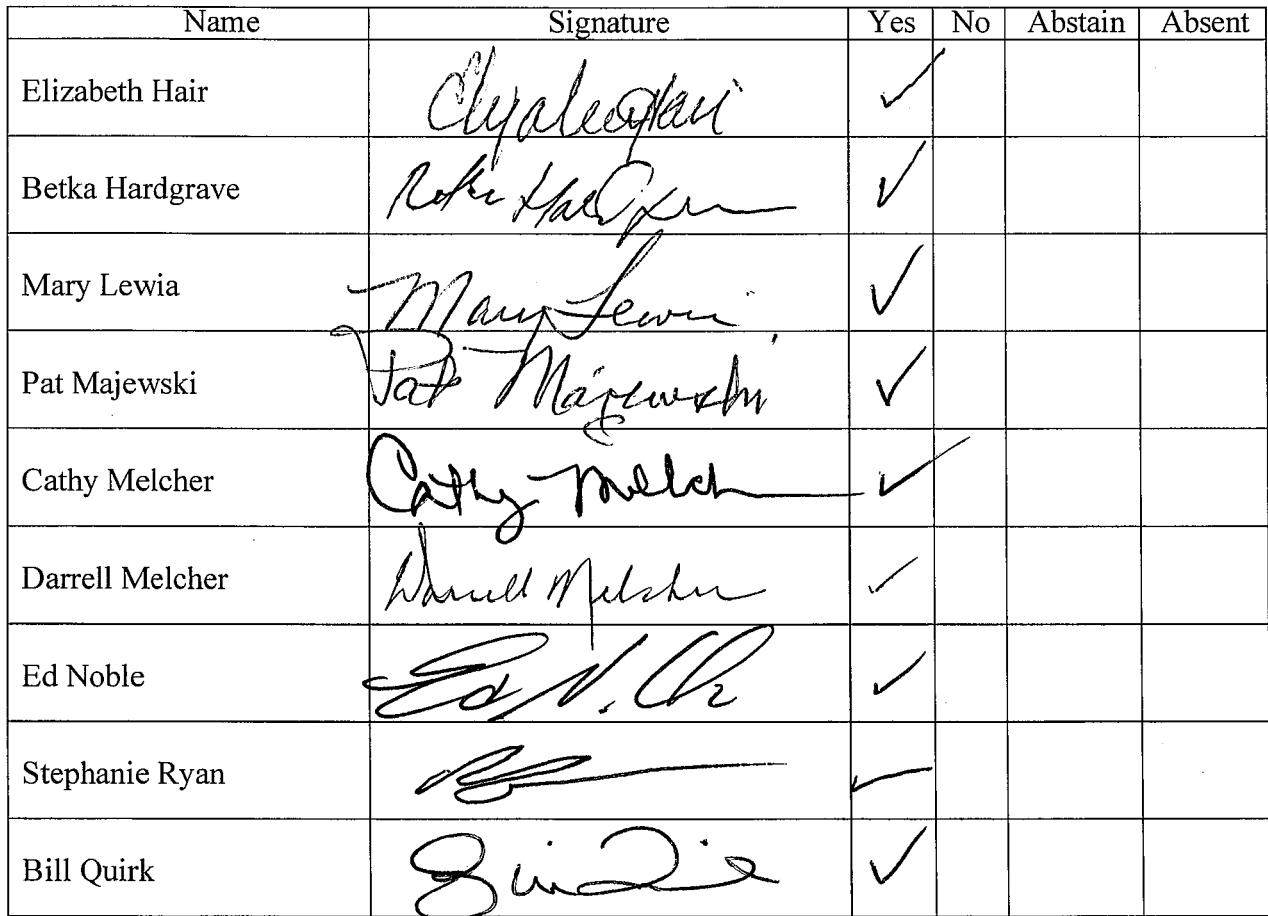 Name Signature Yes No Abstain Absent
Elizabeth Hair
Betka Hardgrave
Mary Lewia Mary Lewia
Pat Majewski Pat Majewski
Cathy Melcher Cathy Melch
Darrell Melcher Darrell Melcher
Ed Noble Ed N.
Stephanie Ryan
Bill Quirk